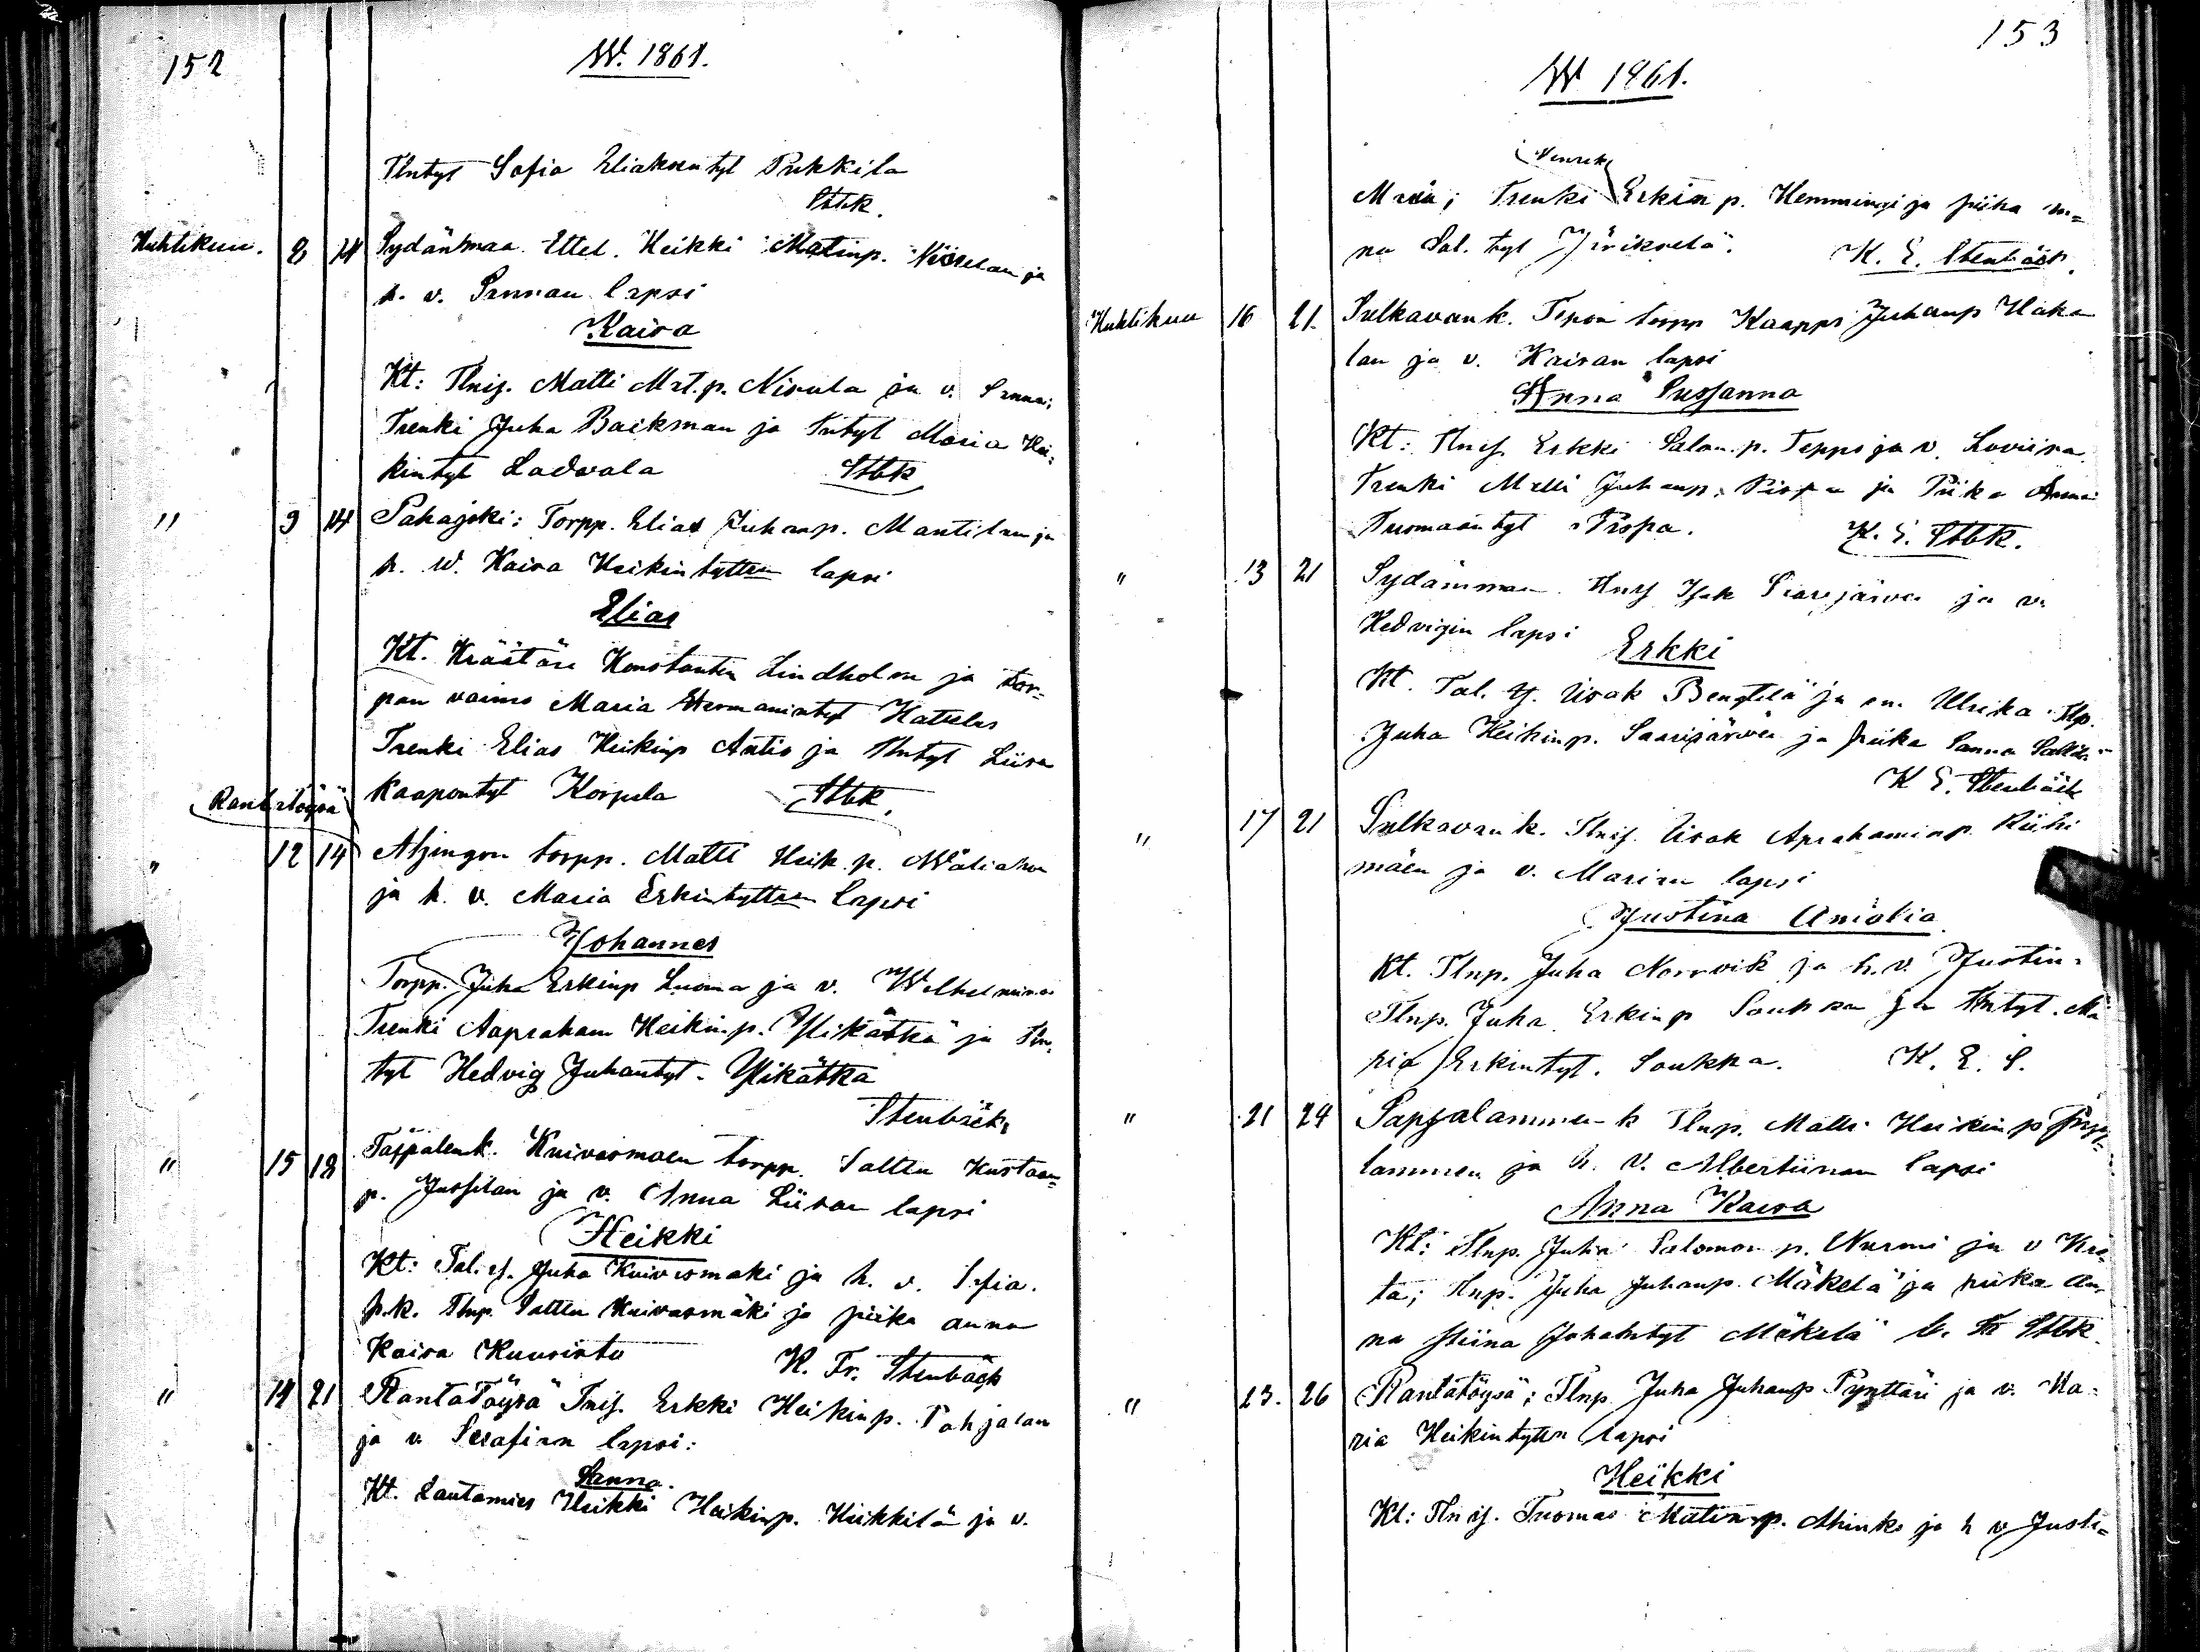 152
W. 1861.
Tlntyt Sofia Eliaksentyt Pukkila
Stbk.
Huhtikuu. 8 14 Sydänmaa Ettel. Heikki Matinp. ja
h. v. Sannan lapsi
Kaisa
Kt: Tlnisj. Matti Mat.p. Nisula ja v. Sanna;
Trenki Juha Backman ja Tntyt Maria Hei-
kintyt Ladvala Stbk
" 9 14 Pahajoki: Torpp. Elias Juhanp. Mantilan ja
h. w. Kaisa Heikintytten lapsi
Elias
Kt. Kräätäri Konstantin Lindholm ja tor-
pan vaimo Maria Hermanintyt
Trenki Elias Heikinp Antio ja Tlntyt Liisa
Kaapontyt Korpela Stbk.
Rantatöysä
" 12 14 Alzingon torpp. Matti Heik. p. Wäliahon
ja h. v. Maria Erkintytten lapsi
Johannes
Torpp. Juha Erkinp Luoma ja v. Wilhelmina
Trenki Aapraham Heikinp. Ylikätkä ja Tln.
tyt Hedvig Juhantyt. Ylikätkä
Stenbäck
" 15 18 Kuivasmäen torpp. Kustaan
p. Jussilan ja v. Anna Liisan lapsi
Heikki
Kt: Tal. isj. Juha Kuivasmäki ja h. v. Sofia.
Tlnp. Kuivasmäki ja piika anna
Kaisa Kuusisto K. Fr. Stenbäck
" 14 21 Rantatöysä Tnisj. Erkki Heikinp. Pohjalan
ja v. Serafian lapsi:
Sanna.
Kt. Lautamies Heikki Heikinp. Heikkilä ja v.
153
W 1861.
Henrik
Maria; Trenki Erkin p. Hemmingi ja piika An-
na Sal. tyt K. E. Stenbäck.
Huhtikuu 16 21. Sulkavank. torpp Kaappi Juhanp Haka
lan ja v. Kaisan lapsi
Anna Sussanna
Kt: Tlnisj. Erkki Salom. p. Teppo ja v. Loviisa.
Trenki Matti Juhanp. Pispa ja Piika Anna
Tuomaantyt Pispa. K. E. Stbk.
" 13 21 Sydänmaa Tlnisj Isak Saarijärven ja v.
Hedvigin lapsi Erkki
Kt. Tal. isj. Iisak Bengtilä ja em. Ulrika. Tlp.
Juha Heikinp. Saarijärven ja piika Sanna
K E. Stenbäck
" 17 21 Sulkavank. Tlnisj. Iisak Aprahaminp. Riihi
mäen ja v. Marian lapsi
Justina Amalia
Kt. Tlnp. Juha Norrvik ja h. v. Justin.
Tlnp. Juha Erkinp Soukka ja Tlntyt. Ma
ria Erkintyt. Soukka. K. E. S.
" 21 24 Sapsalammen k Tlnp. Matti Heikinp Saps-
lammen ja h. v. Albertiinan lapsi
Anna Kaisa
Kt: Tlnp. Juha Salomon p. Nurmi ja v Kre-
ta; Tlnp. Juha Juhanp. Mäkelä ja piika An-
na Stiina Juhantyt Mäkelä Stbk.
" 23. 26 Rantatöysä: Tlnp. Juha Juhanp Pynttäri ja v. Ma-
ria Heikintytten lapsi
Heikki
Kt: Tlnisj. Tuomas Matinp. ja h v Justi-